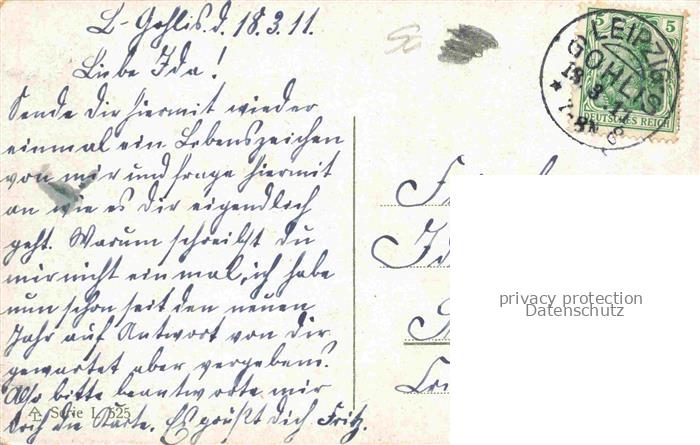 L-Gohlis. d. 18.3.11.
Liebe Ida!
Sende Dir hiermit wieder
einmal ein Lebenszeichen
von mir und frage hiermit
an wie es Dir eigendlich
geht. Warum schreibst du
mir nicht einmal, ich habe
nun schon seit den neuen
Jahr auf Antwort von Dir
gewartet aber vergebens.
Also bitte beantworte mir
doch die Karte. Es grüßt Dich Fritz.
Serie L 525
5 5
DEUTSCHES REICH
LEIPZIG
GOHLIS
18.3.11
7-8N
privacy protection
Datenschutz